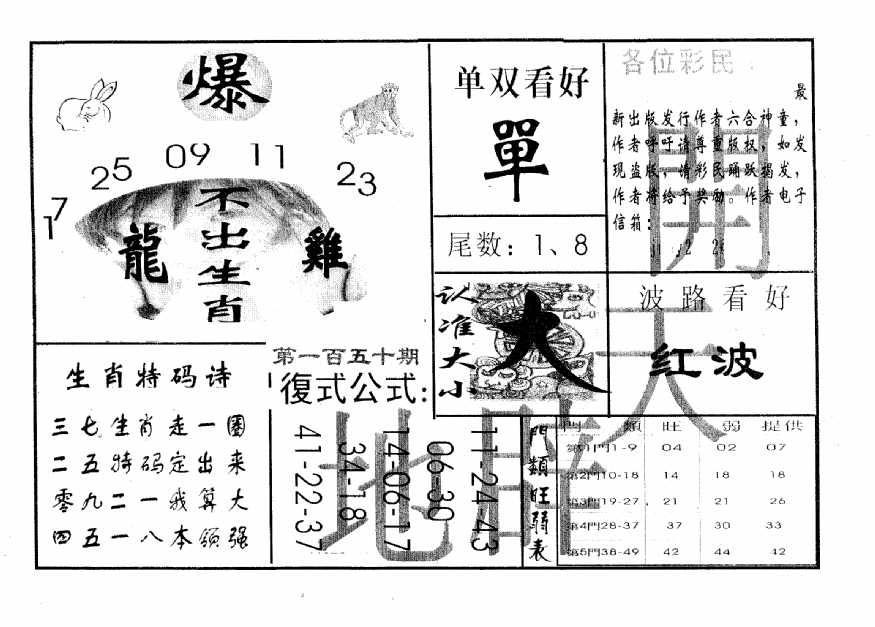 爆
17 25 09 11 23
不出生肖
龍
雞
单双看好
單
尾数：1、8
各位彩民
最
新出版发行作者六合神童，
作者呼吁请尊重版权，如发
现盗版，请彩民踊跃揭发，
作者将给予奖励。作者电子
信箱：
认准大小
大
波路看好
红波
開天闢地
生肖特码诗
三七生肖走一圈
二五特码定出来
零九二一我算大
四五一八本领强
第一百五十期
復式公式：
41-22-37
34-18
14-06-17
06-30
11-24-43
門類旺弱表
門 類 旺 弱 提供
第1門1-9 04 02 07
第2門10-18 14 18 18
第3門19-27 21 21 26
第4門28-37 37 30 33
第5門38-49 42 44 42